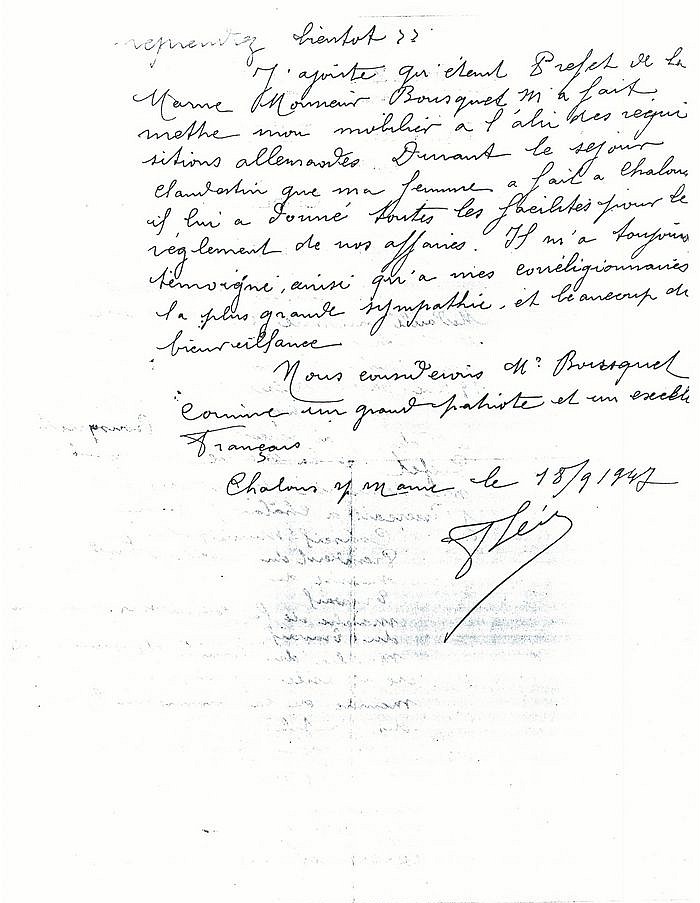 reprendrez bientot »
J'ajoute qu'étant Prefet de la
Marne Monsieur Bousquet m'a fait
mettre mon mobilier a l'abri des réqui
sitions allemandes. Durant le sejour
clandestin que ma femme a fait a Chalons
il lui a donné toutes les facilités pour le
règlement de nos affaires. Il m'a toujours
témoigné, ainsi qu'a mes corréligionnaires
la plus grande sympathie, et beaucoup de
bienveillance
Nous considerons Mr Bousquet
comme un grand patriote et un excellt
Français
Chalons s/ Marne le 18/9 1947